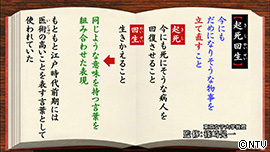 【起死回生】
きしかいせい
今にも
だめになりそうな物事を
立て直すこと
起死
きし
今にも死にそうな病人を
回復させること
回生
かいせい
生きかえること
同じような意味を持つ言葉を
組み合わせた表現
もともと江戸時代前期には
医術の高いことを表す言葉として
使われていた
©NTV